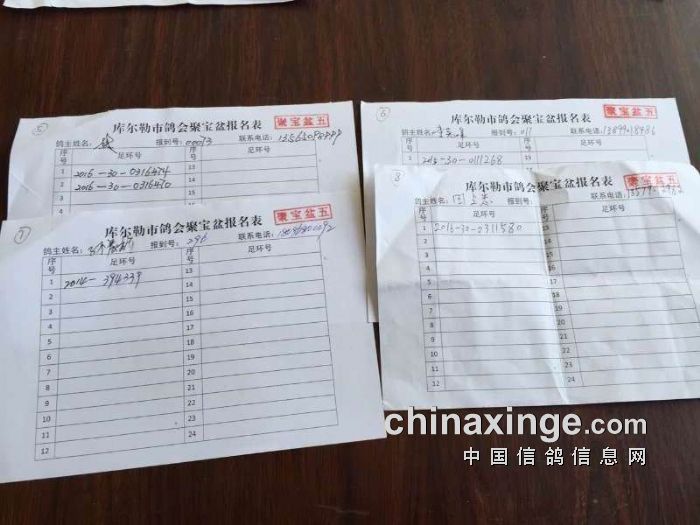 ⑤ 聚宝盆五
库尔勒市鸽会聚宝盆报名表
鸽主姓名: 报到号: 00073 联系电话:
序号 足环号 序号 足环号
1 2016-30-0316474 13
2 2016-30-0316470 14
⑥ 聚宝盆五
库尔勒市鸽会聚宝盆报名表
鸽主姓名: 报到号: 011 联系电话: 13899018486
序号 足环号 序号 足环号
1 2016-30-0111268 13
⑦ 聚宝盆五
库尔勒市鸽会聚宝盆报名表
鸽主姓名: 报到号: 296 联系电话:
序号 足环号 序号 足环号
1 2014-394339 13
2 14
3 15
4 16
5 17
6 18
7 19
8 20
9 21
10 22
11 23
12 24
8 聚宝盆五
库尔勒市鸽会聚宝盆报名表
鸽主姓名: 报到号: 联系电话:
序号 足环号 序号 足环号
1 2016-30-0311580 13
2 14
3 15
4 16
5 17
6 18
7 19
8 20
9 21
10 22
11 23
12 24
chinaxinge.com
中国信鸽信息网